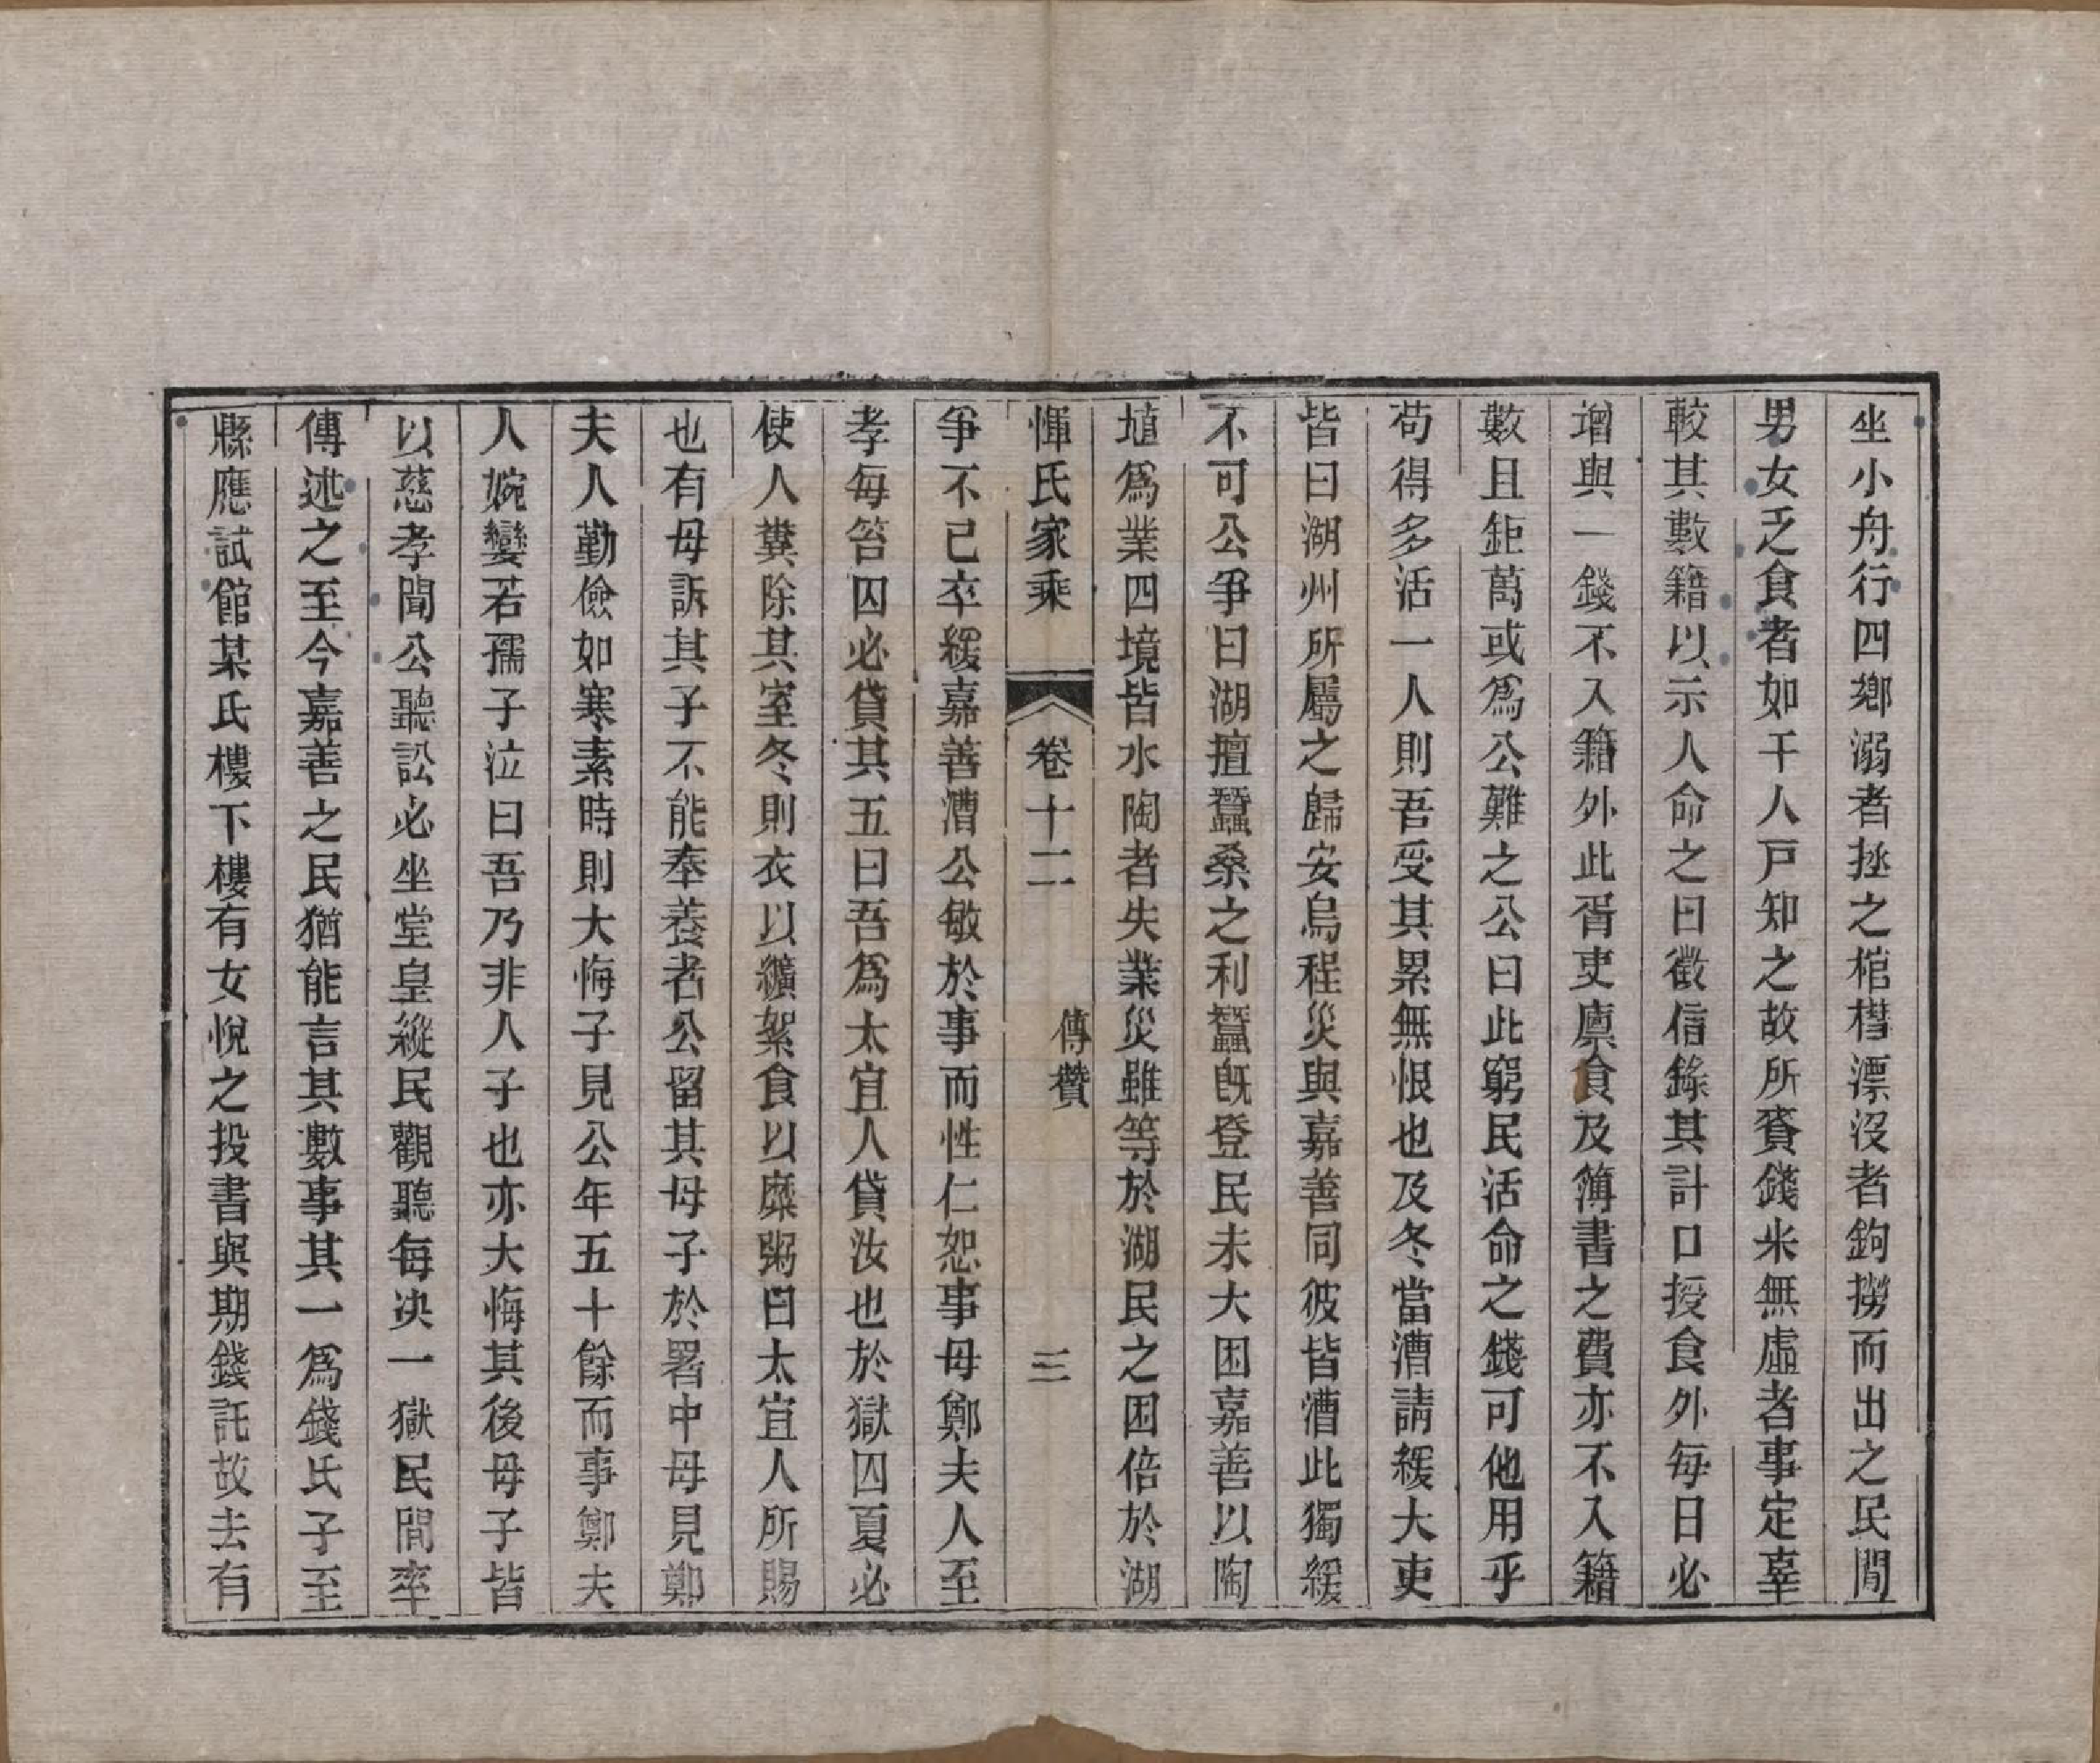 坐小舟行四鄉溺者拯之棺槥漂沒者鉤撈而出之民間
男女乏食者如干人戸知之故所賚錢米無虛者事定辜
較其數籍以示人命之曰徵信錄其計口授食外每日必
增與一錢不入籍外此胥吏廩食及簿書之費亦不入籍
數且鉅萬或爲公難之公曰此窮民活命之錢可他用乎
苟得多活一人則吾受其累無恨也及冬當漕請緩大吏
皆曰湖州所屬之歸安烏程災與嘉善同彼皆漕此獨緩
不可公爭曰湖擅蠶桑之利蠶旣登民未大困嘉善以陶
埴爲業四境皆水陶者失業災雖等於湖民之困倍於湖
惲氏家乘 卷十二 傳贊 三
爭不已卒緩嘉善漕公敏於事而性仁恕事母鄭夫人至
孝每笞囚必貸其五曰吾爲太宜人貸汝也於獄囚夏必
使人糞除其室冬則衣以纊絮食以糜粥曰太宜人所賜
也有母訴其子不能奉養者公留其母子於署中母見鄭
夫人勤儉如寒素時則大悔子見公年五十餘而事鄭夫
人婉孌若孺子泣曰吾乃非人子也亦大悔其後母子皆
以慈孝聞公聽訟必坐堂皇縱民觀聽每决一獄民間率
傳述之至今嘉善之民猶能言其數事其一爲錢氏子至
縣應試館某氏樓下樓有女悅之投書與期錢託故去有